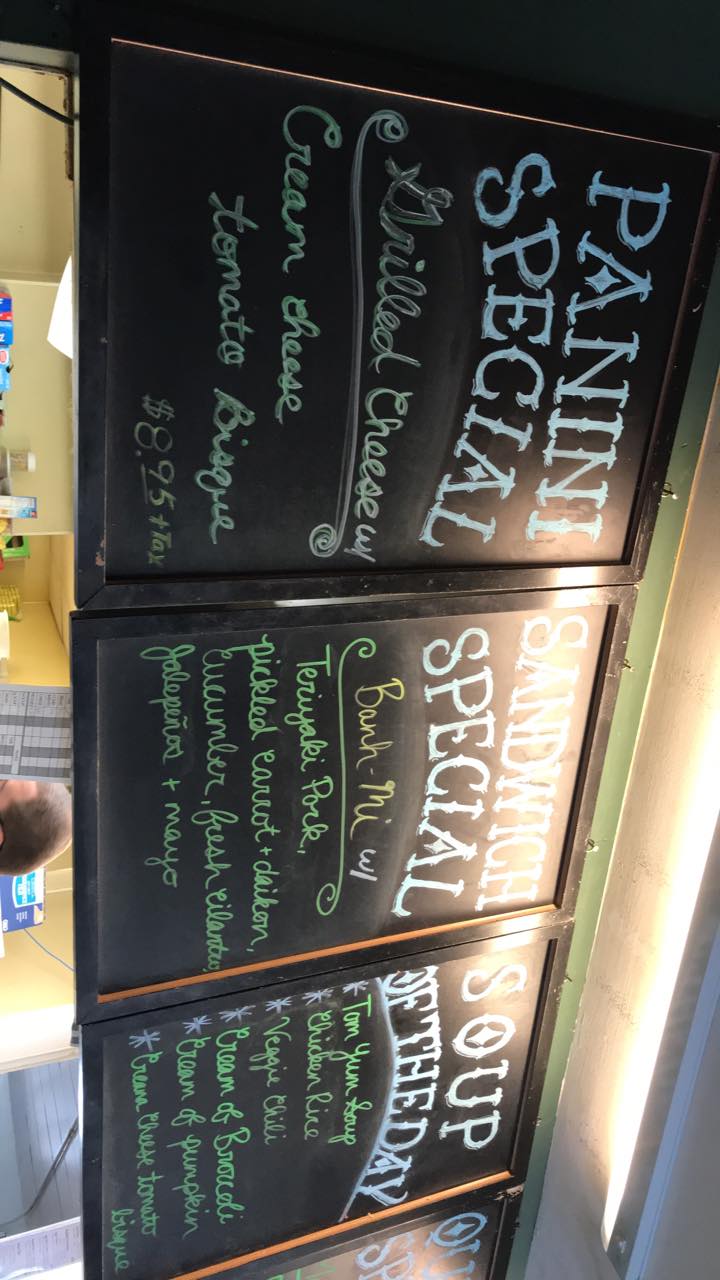 PANINI
SPECIAL
Grilled Cheese w/
Cream cheese
tomato Bisque
$8.95 + Tax
SANDWICH
SPECIAL
Banh-Mi w/
Teriyaki Pork,
pickled carrot + daikon,
cucumber, fresh cilantro,
Jalepeños + mayo
SOUP
OF THE DAY
* Tom Yum Soup
* Chicken Rice
* Veggie Chili
* Cream of Broccoli
* Cream of pumpkin
* Cream cheese tomato
bisque
QU
SP